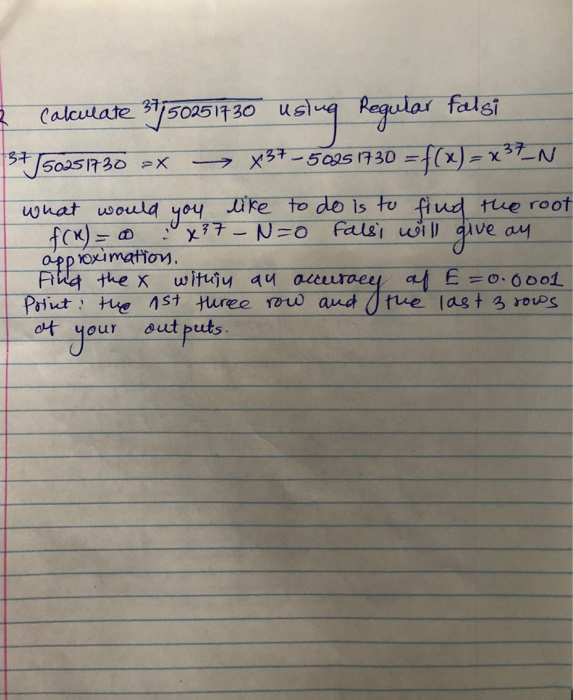 2 Calculate ³⁷√50251730 using Regular falsi
³⁷√50251730 = x → x³⁷ - 50251730 = f(x) = x³⁷ - N
what would you like to do is to find the root
f(x) = 0 : x³⁷ - N = 0 falsi will give an
approximation.
Find the x within an accuracy of E = 0.0001
Print : the 1st three row and the last 3 rows
of your outputs.